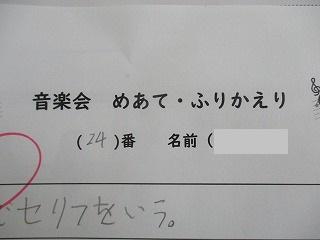 音楽会 めあて・ふりかえり
(24)番 名前(
でセリフをいう。